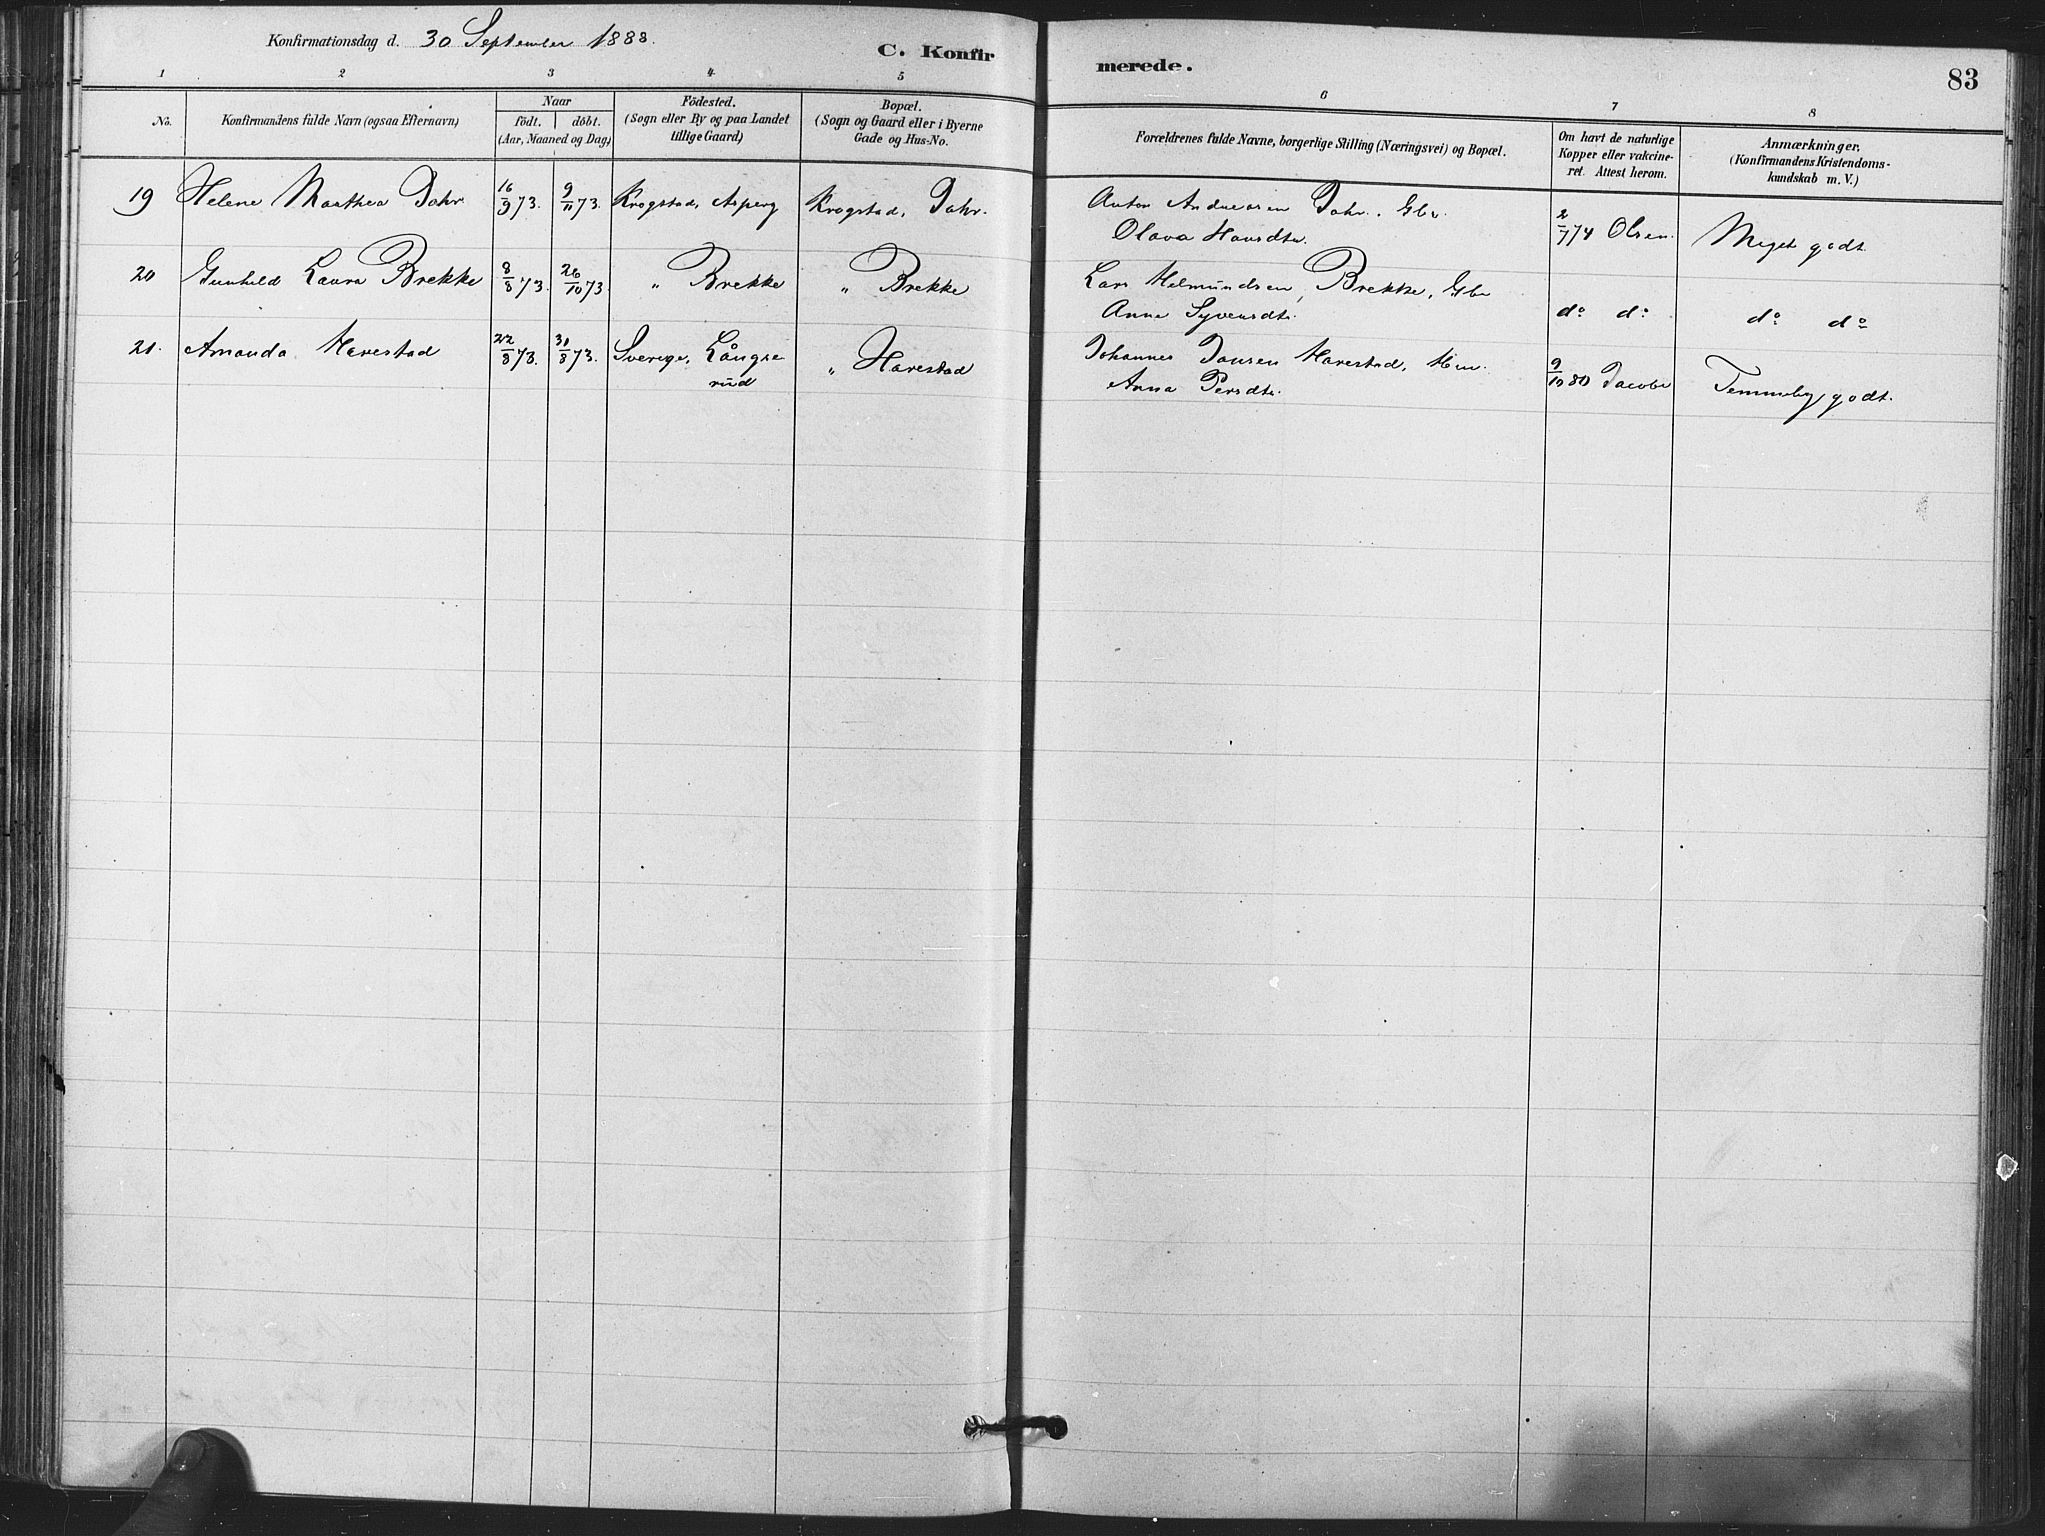 Konfirmationsdag d. 30 September 1888.
C. Konfirmerede.
83
1 2 3 4 5 6 7 8
No.
Konfirmandens fulde Navn (ogsaa Efternavn)
Naar
födt. döbt.
(Aar, Maaned og Dag)
Födested.
(Sogn eller By og paa Landet
tillige Gaard)
Bopæl.
(Sogn og Gaard eller i Byerne
Gade og Hus-No.
Forældrenes fulde Navne, borgerlige Stilling (Næringsvei) og Bopæl.
Om havt de naturlige
Kopper eller vakcine-
ret. Attest herom.
Anmærkninger.
(Konfirmandens Kristendoms-
kundskab m. V.)
19 Helene Maathea Dahr 16/9 73. 9/11 73. Krogstad, Asperg Krogstad, Dahr. Anton Andreasen Dahr. Gbr. 2/7 74 Olsen. Meget godt.
Olava Hansdtr.
20 Gunhild Laura Brekke 8/8 73. 26/10 73 " Brekke " Brekke Lars Helmundsen Brekke, Gbr do do do do
Anne Syversdtr.
21. Amanda Harestad 22/8 73. 31/8 73. Sverige, Långse " Harestad Johannes Jansen Harestad, Hm. 9/10 80 Jacobe Temmelig godt.
rud Anna Persdtr.